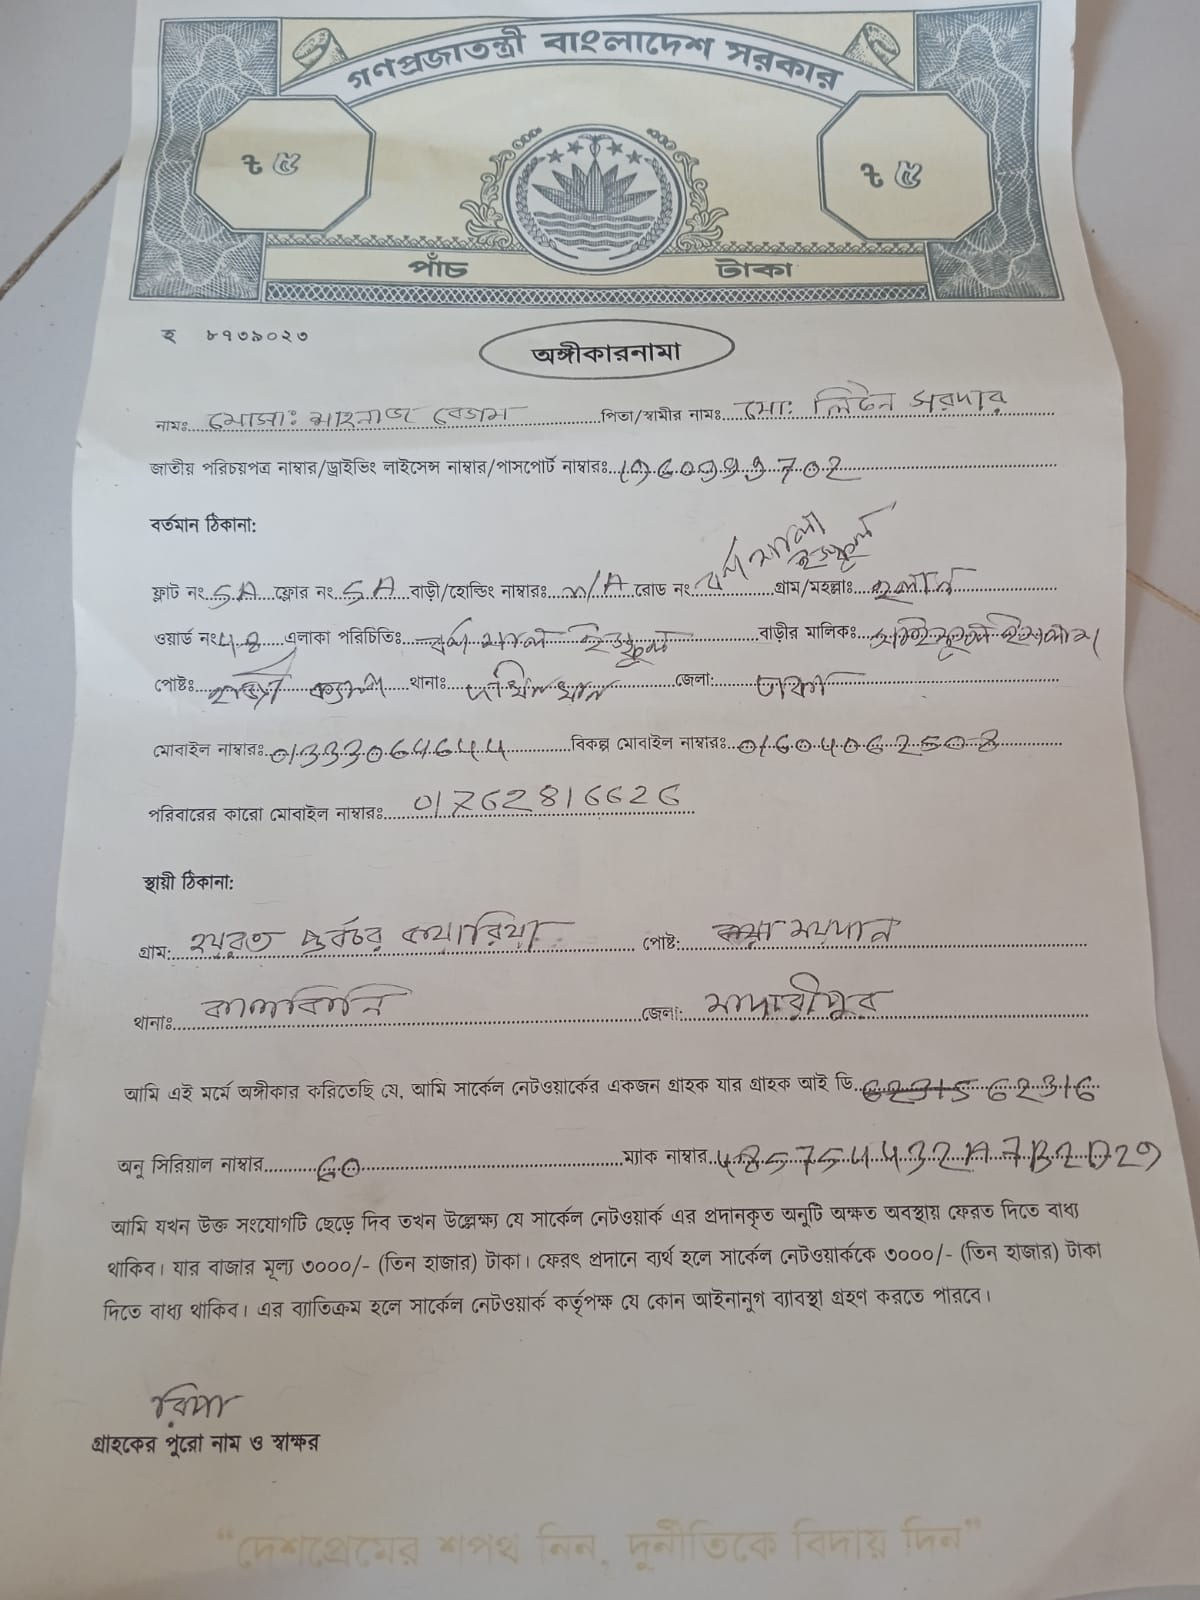 গণপ্রজাতন্ত্রী বাংলাদেশ সরকার
৳ ৫ ৳ ৫
পাঁচ টাকা
হ ৮৭৩৯০২৩
অঙ্গীকারনামা
নামঃ মোসাঃ মাহনাজ বেগম পিতা/স্বামীর নামঃ মো: লিটন সরদার
জাতীয় পরিচয়পত্র নাম্বার/ড্রাইভিং লাইসেন্স নাম্বার/পাসপোর্ট নাম্বারঃ
বর্তমান ঠিকানা:
ফ্লাট নং 5A ফ্লোর নং 5A বাড়ী/হোল্ডিং নাম্বারঃ রোড নং বর্ণমালা ইস্কুল গ্রাম/মহল্লাঃ
ওয়ার্ড নং 48 এলাকা পরিচিতিঃ বর্ণমালা ইস্কুল বাড়ীর মালিকঃ
পোষ্টঃ থানাঃ দক্ষিনখান জেলা: ঢাকা
মোবাইল নাম্বারঃ 01333064644 বিকল্প মোবাইল নাম্বারঃ
পরিবারের কারো মোবাইল নাম্বারঃ 01762816626
স্থায়ী ঠিকানা:
গ্রাম: পোষ্ট:
থানাঃ কালকিনি জেলা: মাদারীপুর
আমি এই মর্মে অঙ্গীকার করিতেছি যে, আমি সার্কেল নেটওয়ার্কের একজন গ্রাহক যার গ্রাহক আই ডি 62315 62316
অনু সিরিয়াল নাম্বার 60 ম্যাক নাম্বার 485754432A7B2D29
আমি যখন উক্ত সংযোগটি ছেড়ে দিব তখন উল্লেক্ষ্য যে সার্কেল নেটওয়ার্ক এর প্রদানকৃত অনুটি অক্ষত অবস্থায় ফেরত দিতে বাধ্য
থাকিব। যার বাজার মূল্য ৩০০০/- (তিন হাজার) টাকা। ফেরৎ প্রদানে ব্যর্থ হলে সার্কেল নেটওয়ার্ককে ৩০০০/- (তিন হাজার) টাকা
দিতে বাধ্য থাকিব। এর ব্যাতিক্রম হলে সার্কেল নেটওয়ার্ক কর্তৃপক্ষ যে কোন আইনানুগ ব্যাবস্থা গ্রহণ করতে পারবে।
রিপা
গ্রাহকের পুরো নাম ও স্বাক্ষর
“দেশপ্রেমের শপথ নিন, দুর্নীতিকে বিদায় দিন”